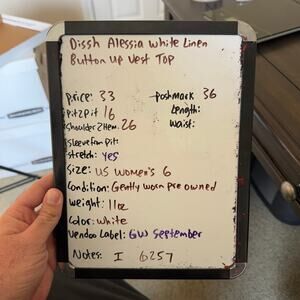 Dissh Alessia White Linen
Button Up Vest Top
Price: 33
Poshmark 36
Pit2Pit 16
Length:
Shoulder2Hem: 26
Waist:
Sleeve from Pit:
Stretch: Yes
Size: US Women's 6
Condition: Gently worn Pre owned
Weight: 11oz
Color: White
Vendoo Label: GW September
Notes: I 6257